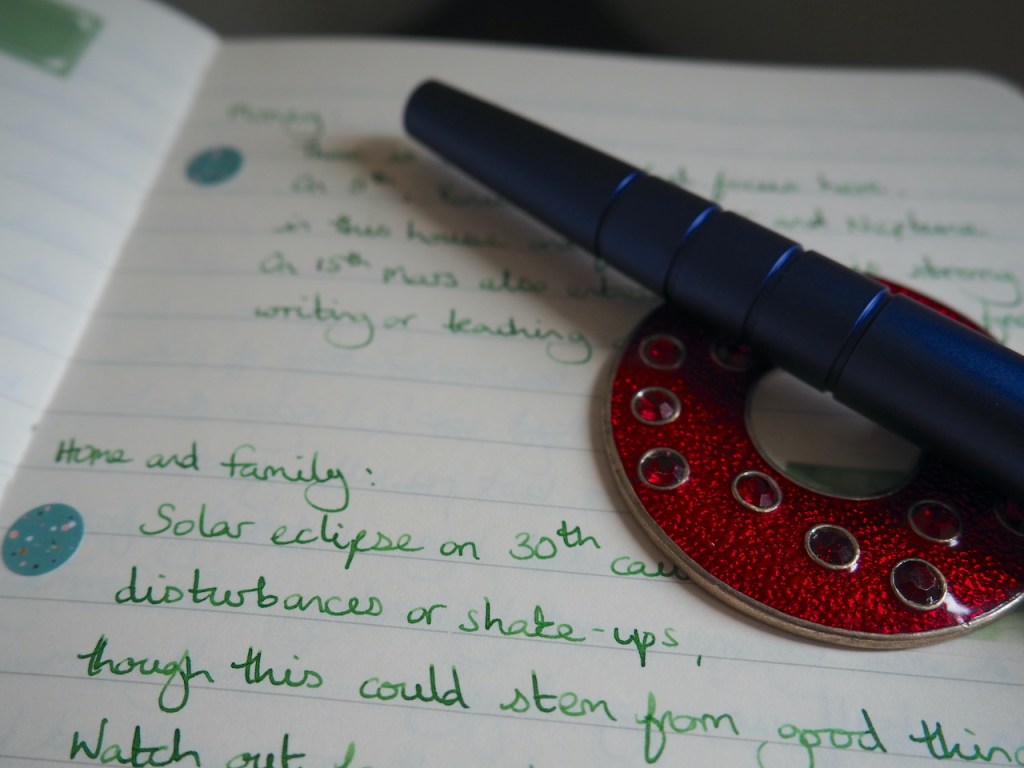 Money
There is
On 8th, focuses here.
in this house and Neptune
On 15th Mars also strong
writing or teaching
Home and family:
Solar eclipse on 30th
disturbances or shake-ups,
though this could stem from good
Watch out